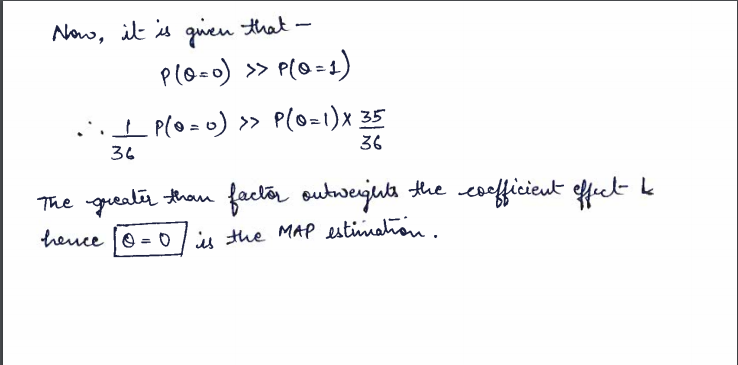 Now, it is given that —
P(θ=0) >> P(θ=1)
∴ 1/36 P(θ=0) >> P(θ=1) x 35/36
The greater than factor outweights the coefficient effect &
hence θ = 0 is the MAP estimation.